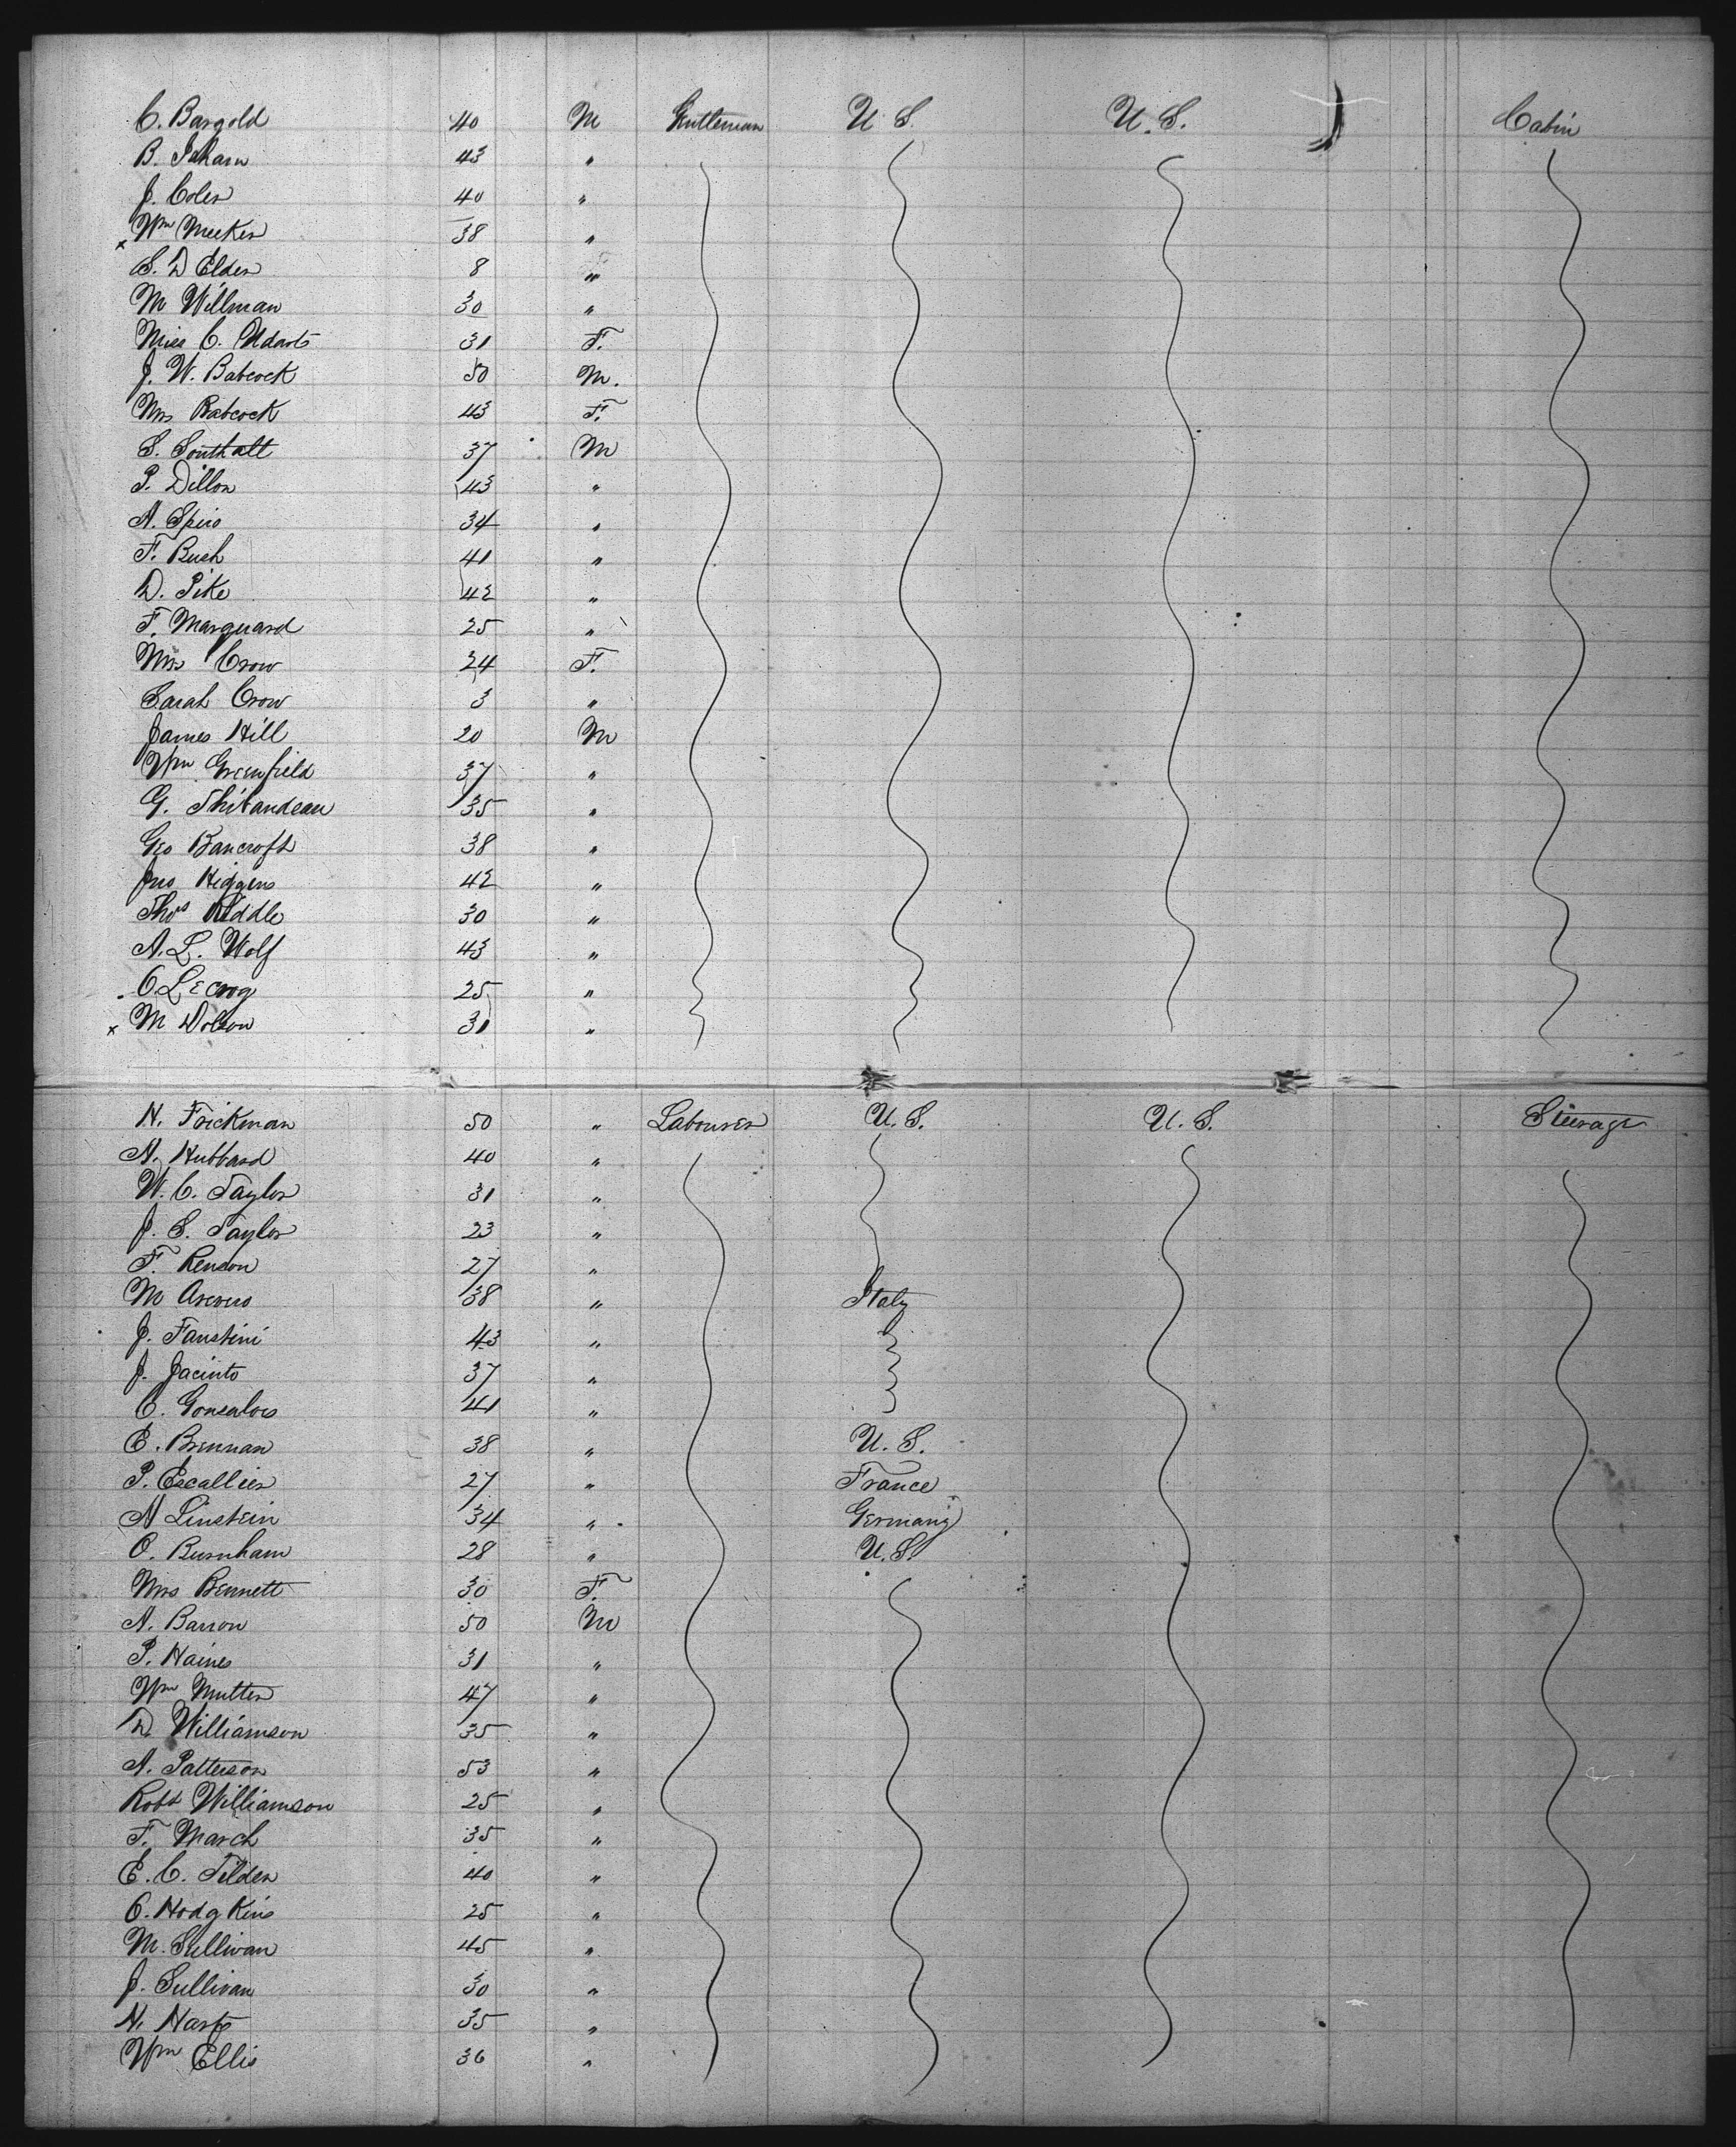 C. Bargold 40 M Gentleman U. S. U. S. Cabin
B. 43 "
J. Coles 40 "
x Wm Meeker 38 "
S. D Elder 8 "
M Willman 30 "
Miss C. 31 F.
J. W. Babcock 50 M.
Mrs Babcock 43 F.
S. Southall 37 M
P. Dillon 43 "
A. Spiro 34 "
F. Bush 41 "
D. Pike 42 "
F. Marquard 25 "
Mrs Crow 24 F.
Sarah Crow 3 "
James Hill 20 M
Wm Greenfield 37 "
G. Thibaudeau 35 "
Geo Bancroft 38 "
Jno Higgens 42 "
Thos 30 "
A. L. Wolf 43 "
25 "
x M Dolson 31 "
H. Frickman 50 " Labourer U. S. U. S. Steerage
A. Hubbard 40 "
W. C. Taylor 31 "
J. S. Taylor 23 "
F. Renson 27 "
M 38 " Italy
J. Faustini 43 "
J. Jacinto 37 "
C. Gonsalves 41 "
E. Brennan 38 " U. S.
P. Escallier 27 " France
A Linstein 34 " Germany
O. Burnham 28 " U. S.
Mrs Bennett 30 F.
A. Barron 50 M
P. Haines 31 "
Wm Mutter 47 "
D Williamson 35 "
A. Patterson 53 "
Robt Williamson 25 "
F. March 35 "
E. C. Tilden 40 "
C. Hodgkins 25 "
M. Sullivan 45 "
J. Sullivan 30 "
N. 35 "
Wm Ellis 36 "